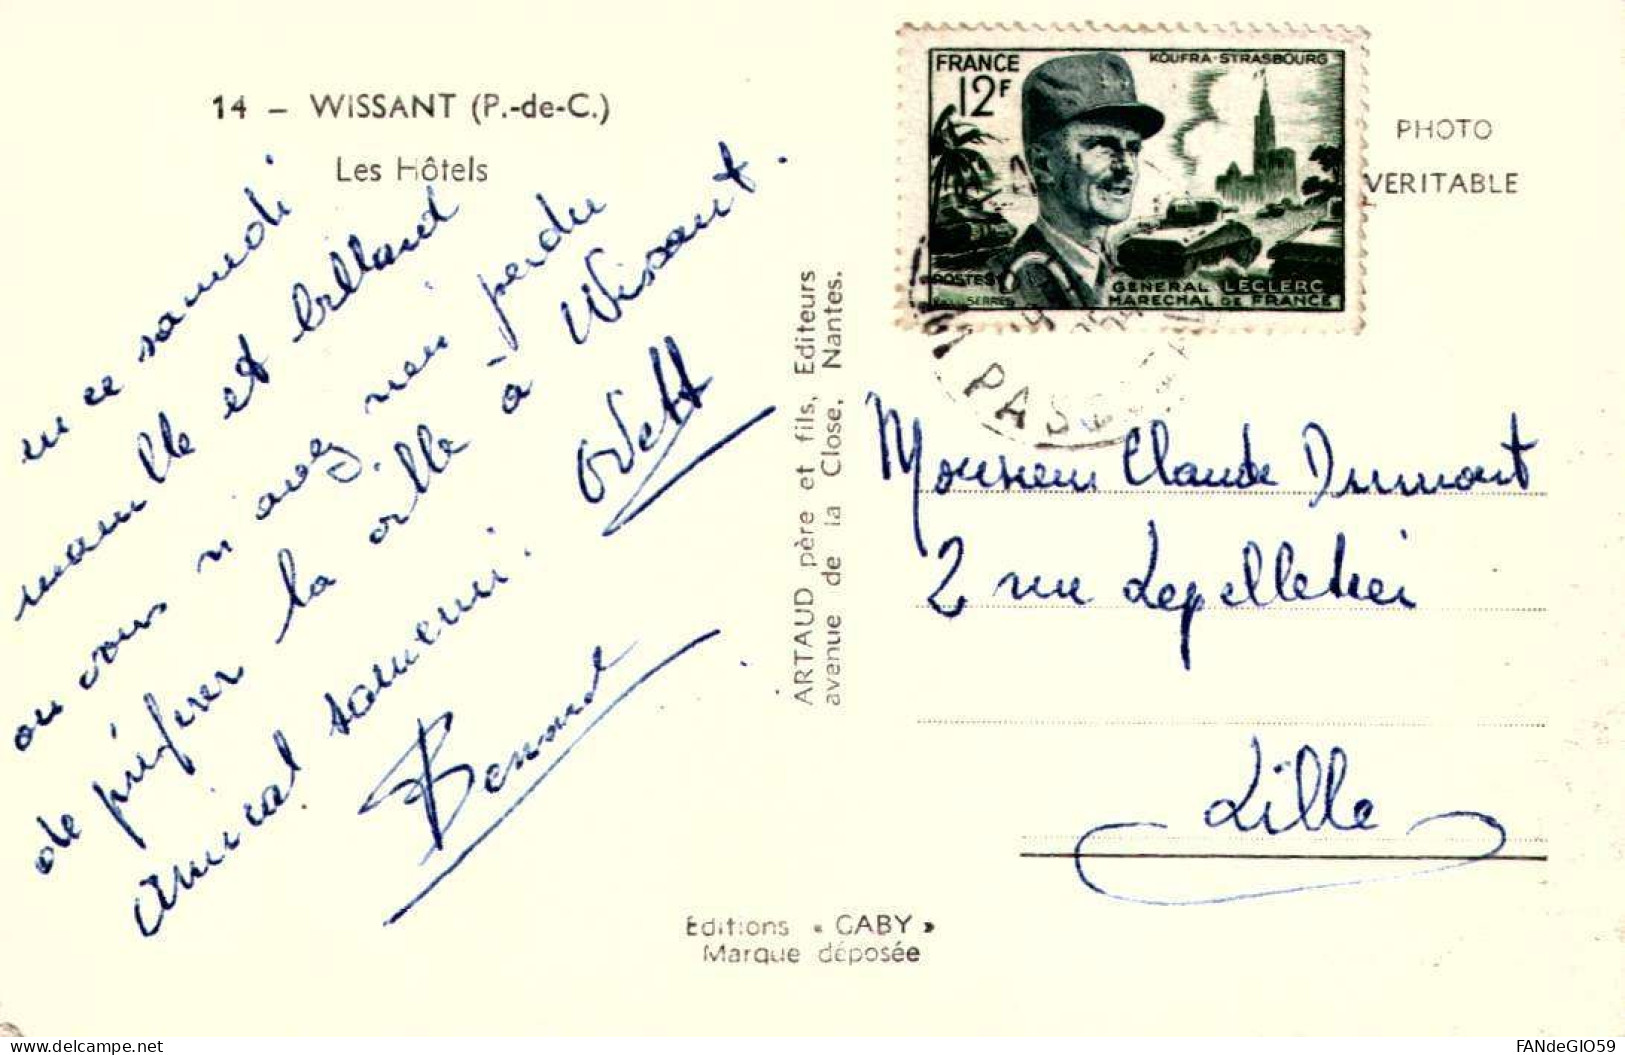 14 – WISSANT (P.-de-C.)
Les Hôtels
ce samedi
et brilland
ou vous n'avez rien perdu
de préférer la à Wissant.
Amical souvenir.
Odett
Bernard
ARTAUD père et fils, Editeurs
avenue de la Close, Nantes.
Editions « GABY »
Marque déposée
FRANCE
12F
KOUFRA-STRASBOURG
POSTES
SERRES
GENERAL LECLERC
MARECHAL DE FRANCE
PAS
PHOTO
VERITABLE
Monsieur Claude Dumont
2 rue Lepelletier
Lille
delcampe.net
FANdeGIO59